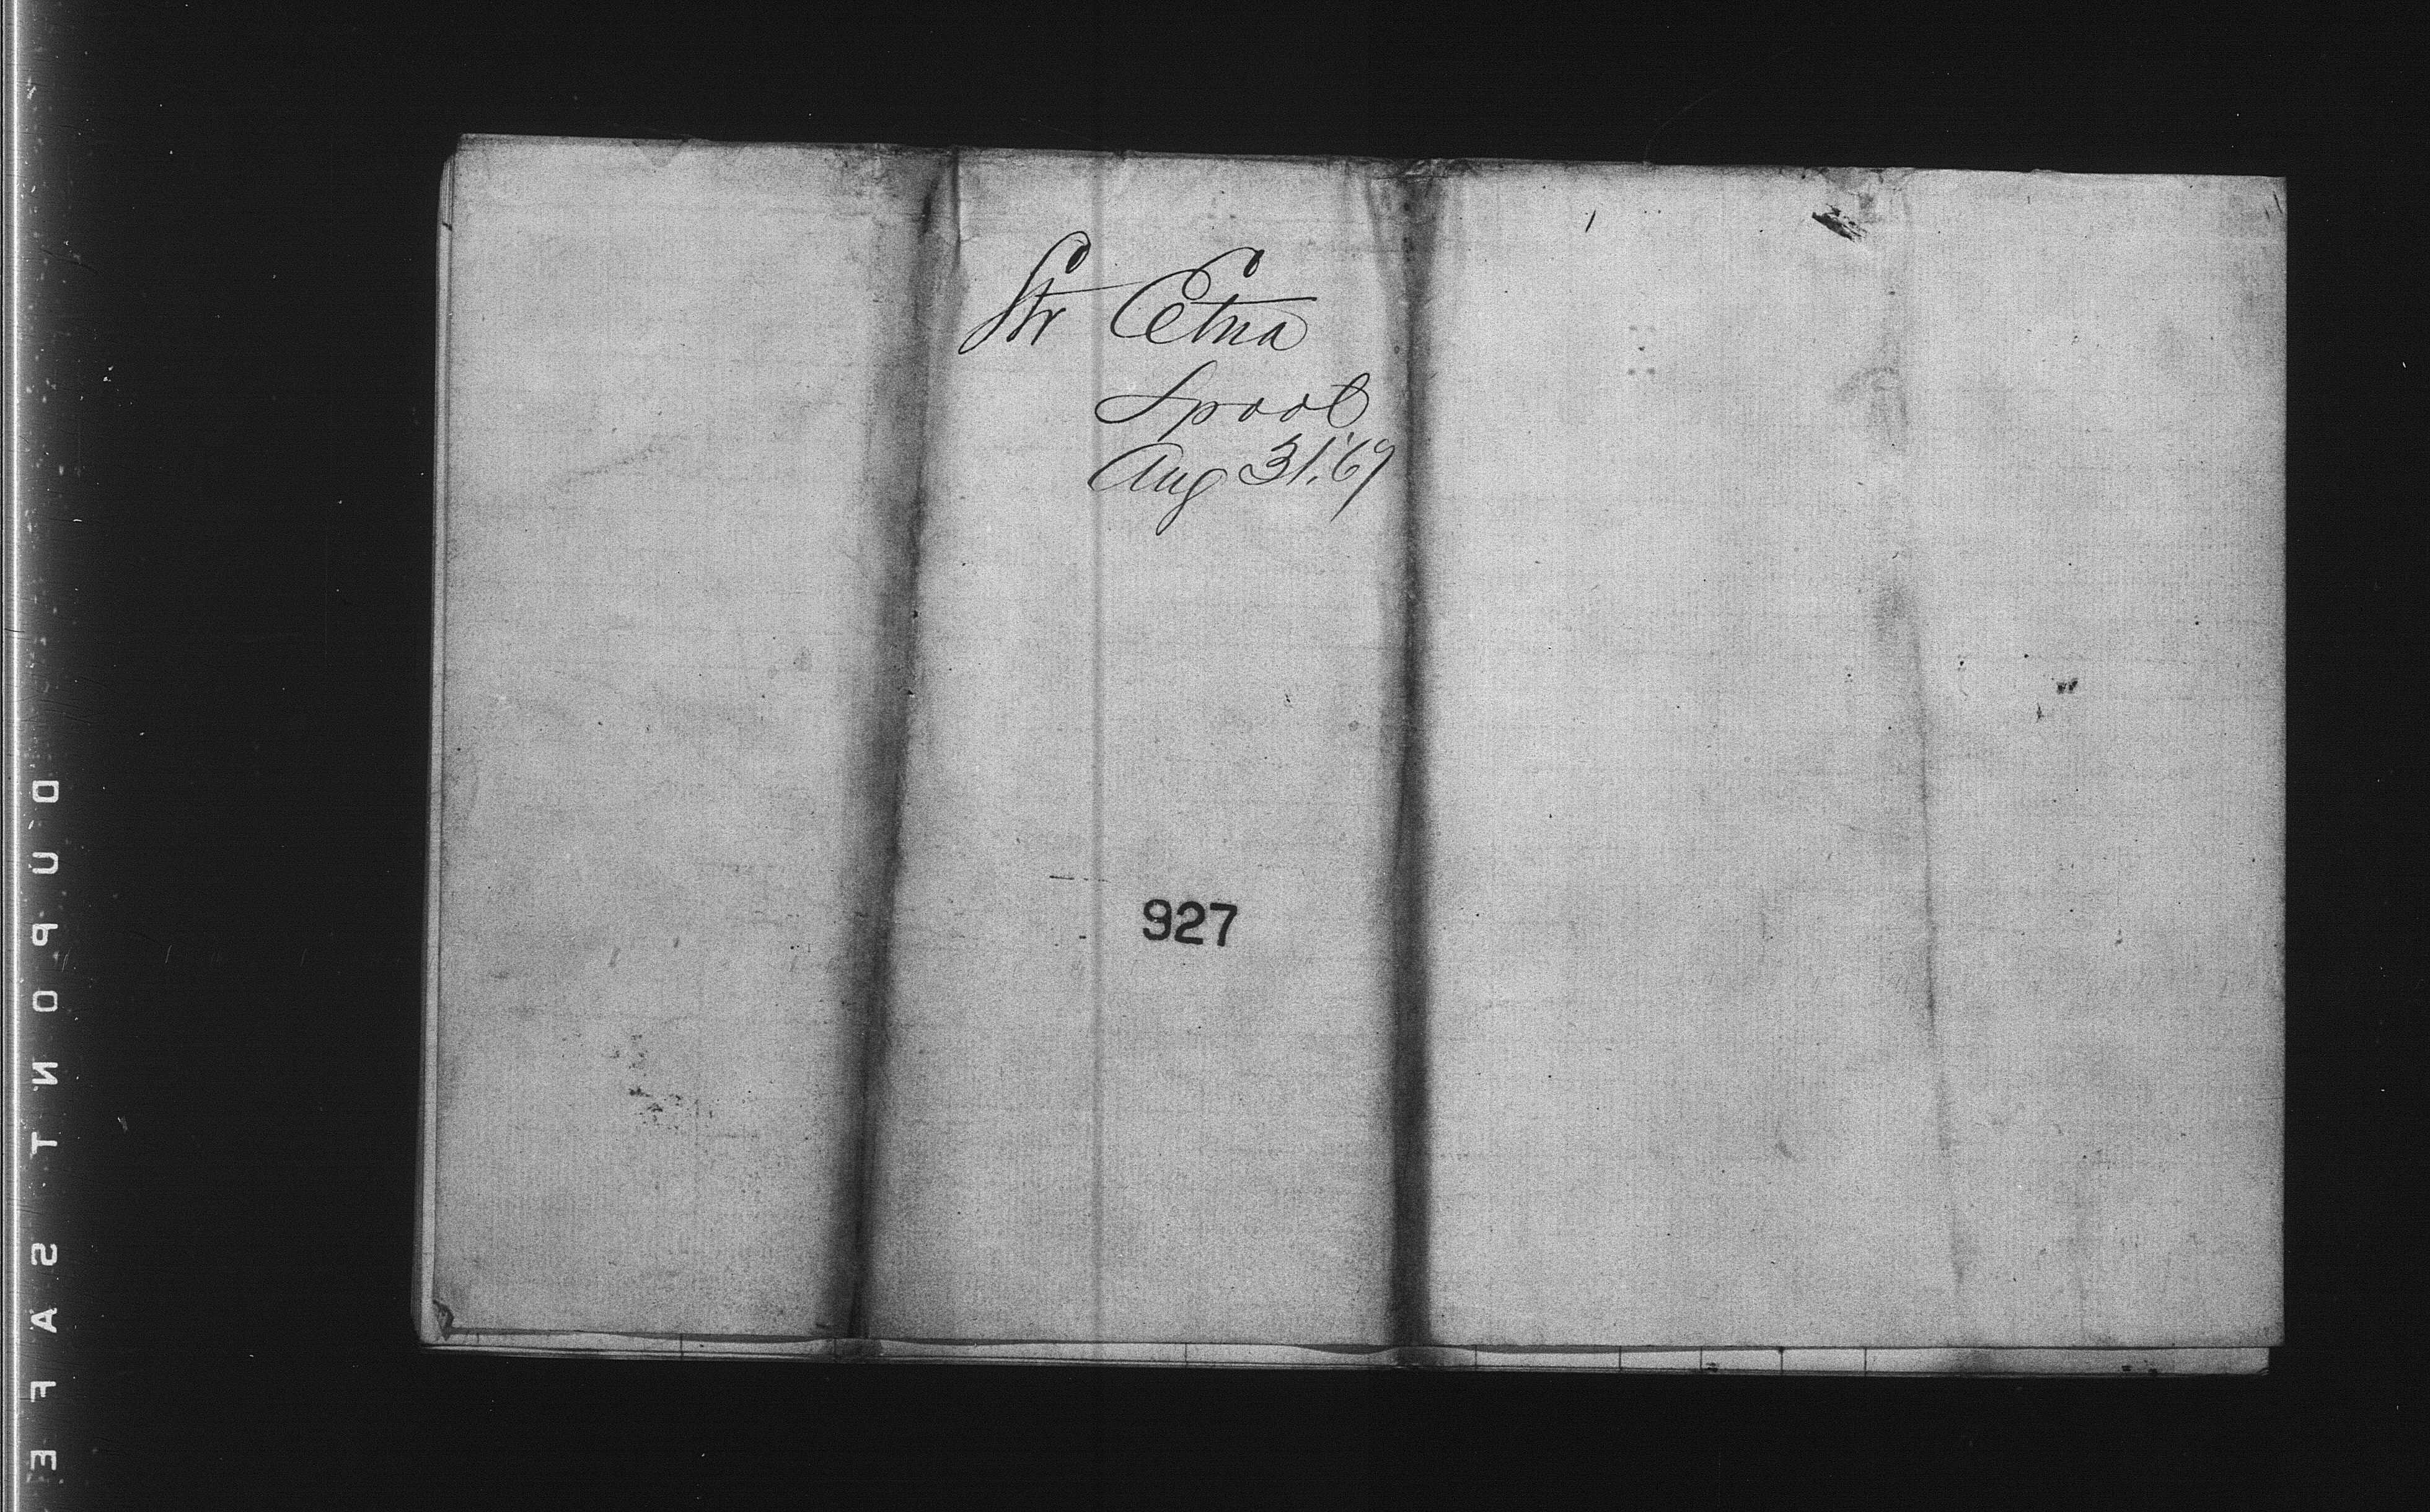 Str Etna
Lpool
Aug 31.'69
927
DUPONT SAFE